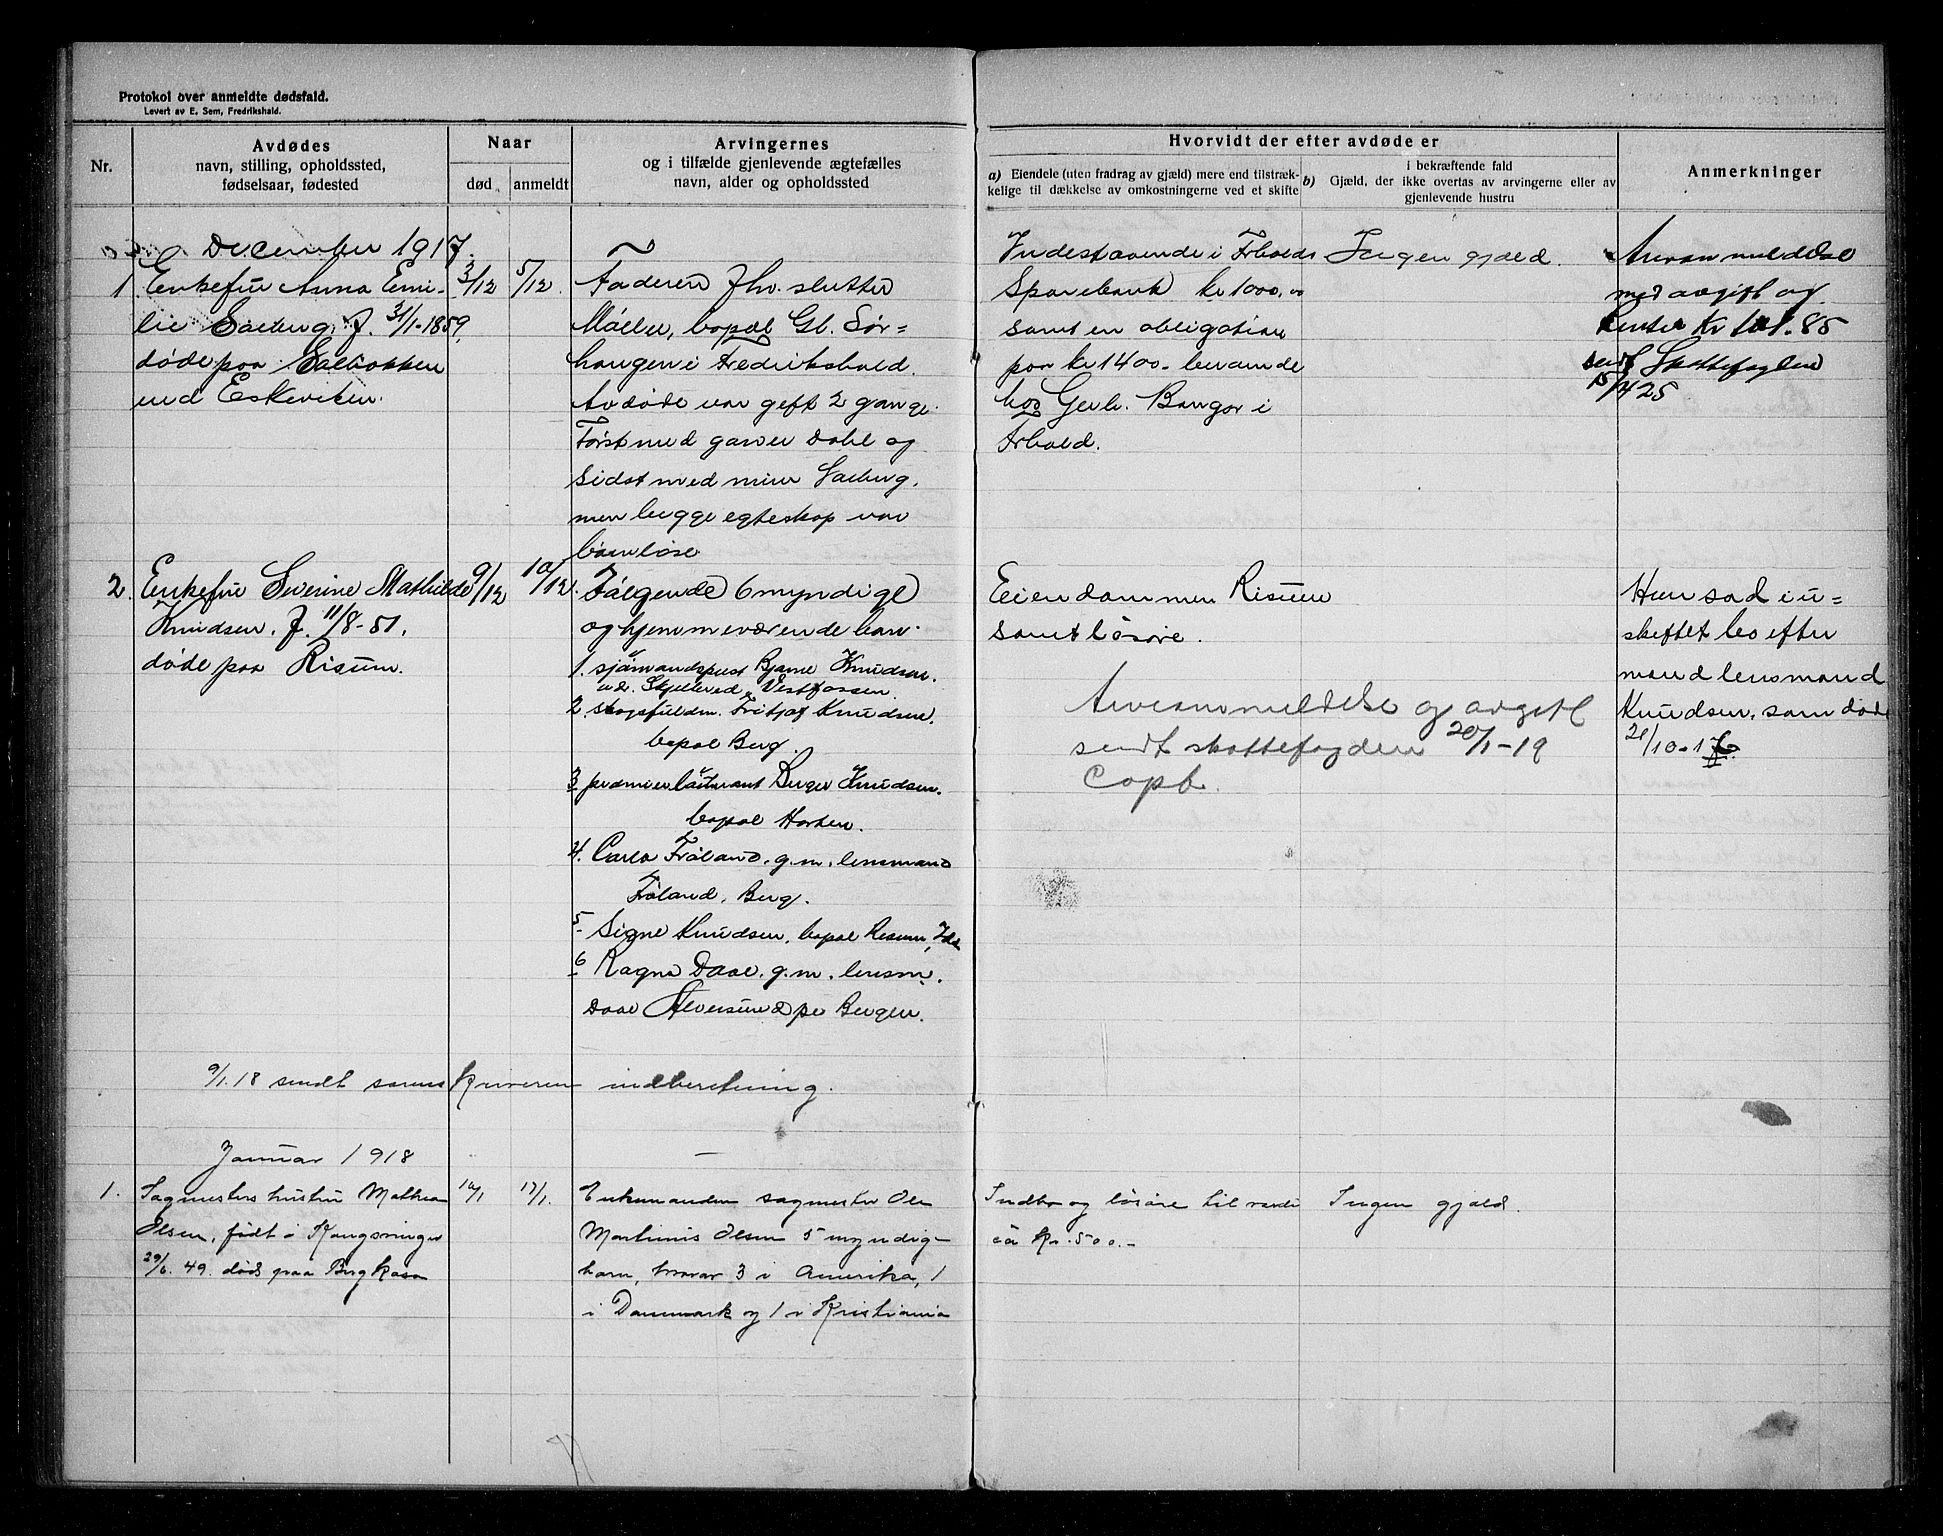 Protokol over anmeldte dødsfald.
Levert av E. Sem, Fredrikshald.
Nr.
Avdødes
navn, stilling, opholdssted,
fødselsaar, fødested
Naar
død
anmeldt
Arvingernes
og i tilfælde gjenlevende ægtefælles
navn, alder og opholdssted
Hvorvidt der efter avdøde er
a) Eiendele (uten fradrag av gjæld) mere end tilstræk-
kelige til dækkelse av omkostningerne ved et skifte
b) i bekræftende fald
Gjæld, der ikke overtas av arvingerne eller av
gjenlevende hustru
Anmerkninger
December 1917.
1 Enkefru Anna Emi-
lie Saeberg, f. 31/1-1859,
døde paa
ved Eskeviken.
3/12
5/12
Faderen Jhv. slutter
Møller, bopæl Gl. Sør-
haugen i Fredrikshald.
Avdøde var gift 2 gange.
Først med garver Dahl og
sidst med murer Saeberg,
men begge egteskap var
barnløse
Indestaaende i Frhalds
Sparebank kr 1000,00
samt en obligation
paa kr 1400.- beroende
hos Gerh. Bangor i
Frhald.
Ingen gjæld.
Arveanmeldelse
med avgift og
Renter Kr 101.85
sendt Skattefogden
15/4 25
2. Enkefru Severine Mathilde
Knudsen. f. 11/8-51.
døde paa Risum.
9/12
10/12.
Følgende 6 myndige
og hjemmeværende barn.
1. sjømandsprest Bjarne Knudsen.
adr. Skjellerud, Vestfossen.
2. skogsfuldm. Fritjof Knudsen.
bopæl Berg.
3 premierløitnant Birger Knudsen.
bopæl Horten.
4. Carla Frøland, g.m. lensmand
Frøland, Berg.
5- Signe Knudsen, bopæl Risum, Idd
6 Ragna Daae. g.m. lensm.
Daae Alversund pr Bergen.
Eiendommen Risum
samt løsøre.
Arveanmeldelse og avgift
sendt skattefogden 20/1-19
Copb.
Hun sad i u-
skiftet bo efter
mand lensmand
Knudsen, som døde
21/10-16.
9/1.18 sendt sorenskriveren indberetning.
Januar 1918
1. Sagmesters hustru Mathea
Olsen, født i Kongsvinger
29/6.49. død paa Bergkasa
10/1
17/1.
Enkemanden sagmester Ole
Martinius Olsen 5 myndig-
barn, hvorav 3 i Amerika, 1
i Danmark og 1 i Kristiania
Indbo og løsøre til værdi
ca Kr. 500.-
Ingen gjæld.